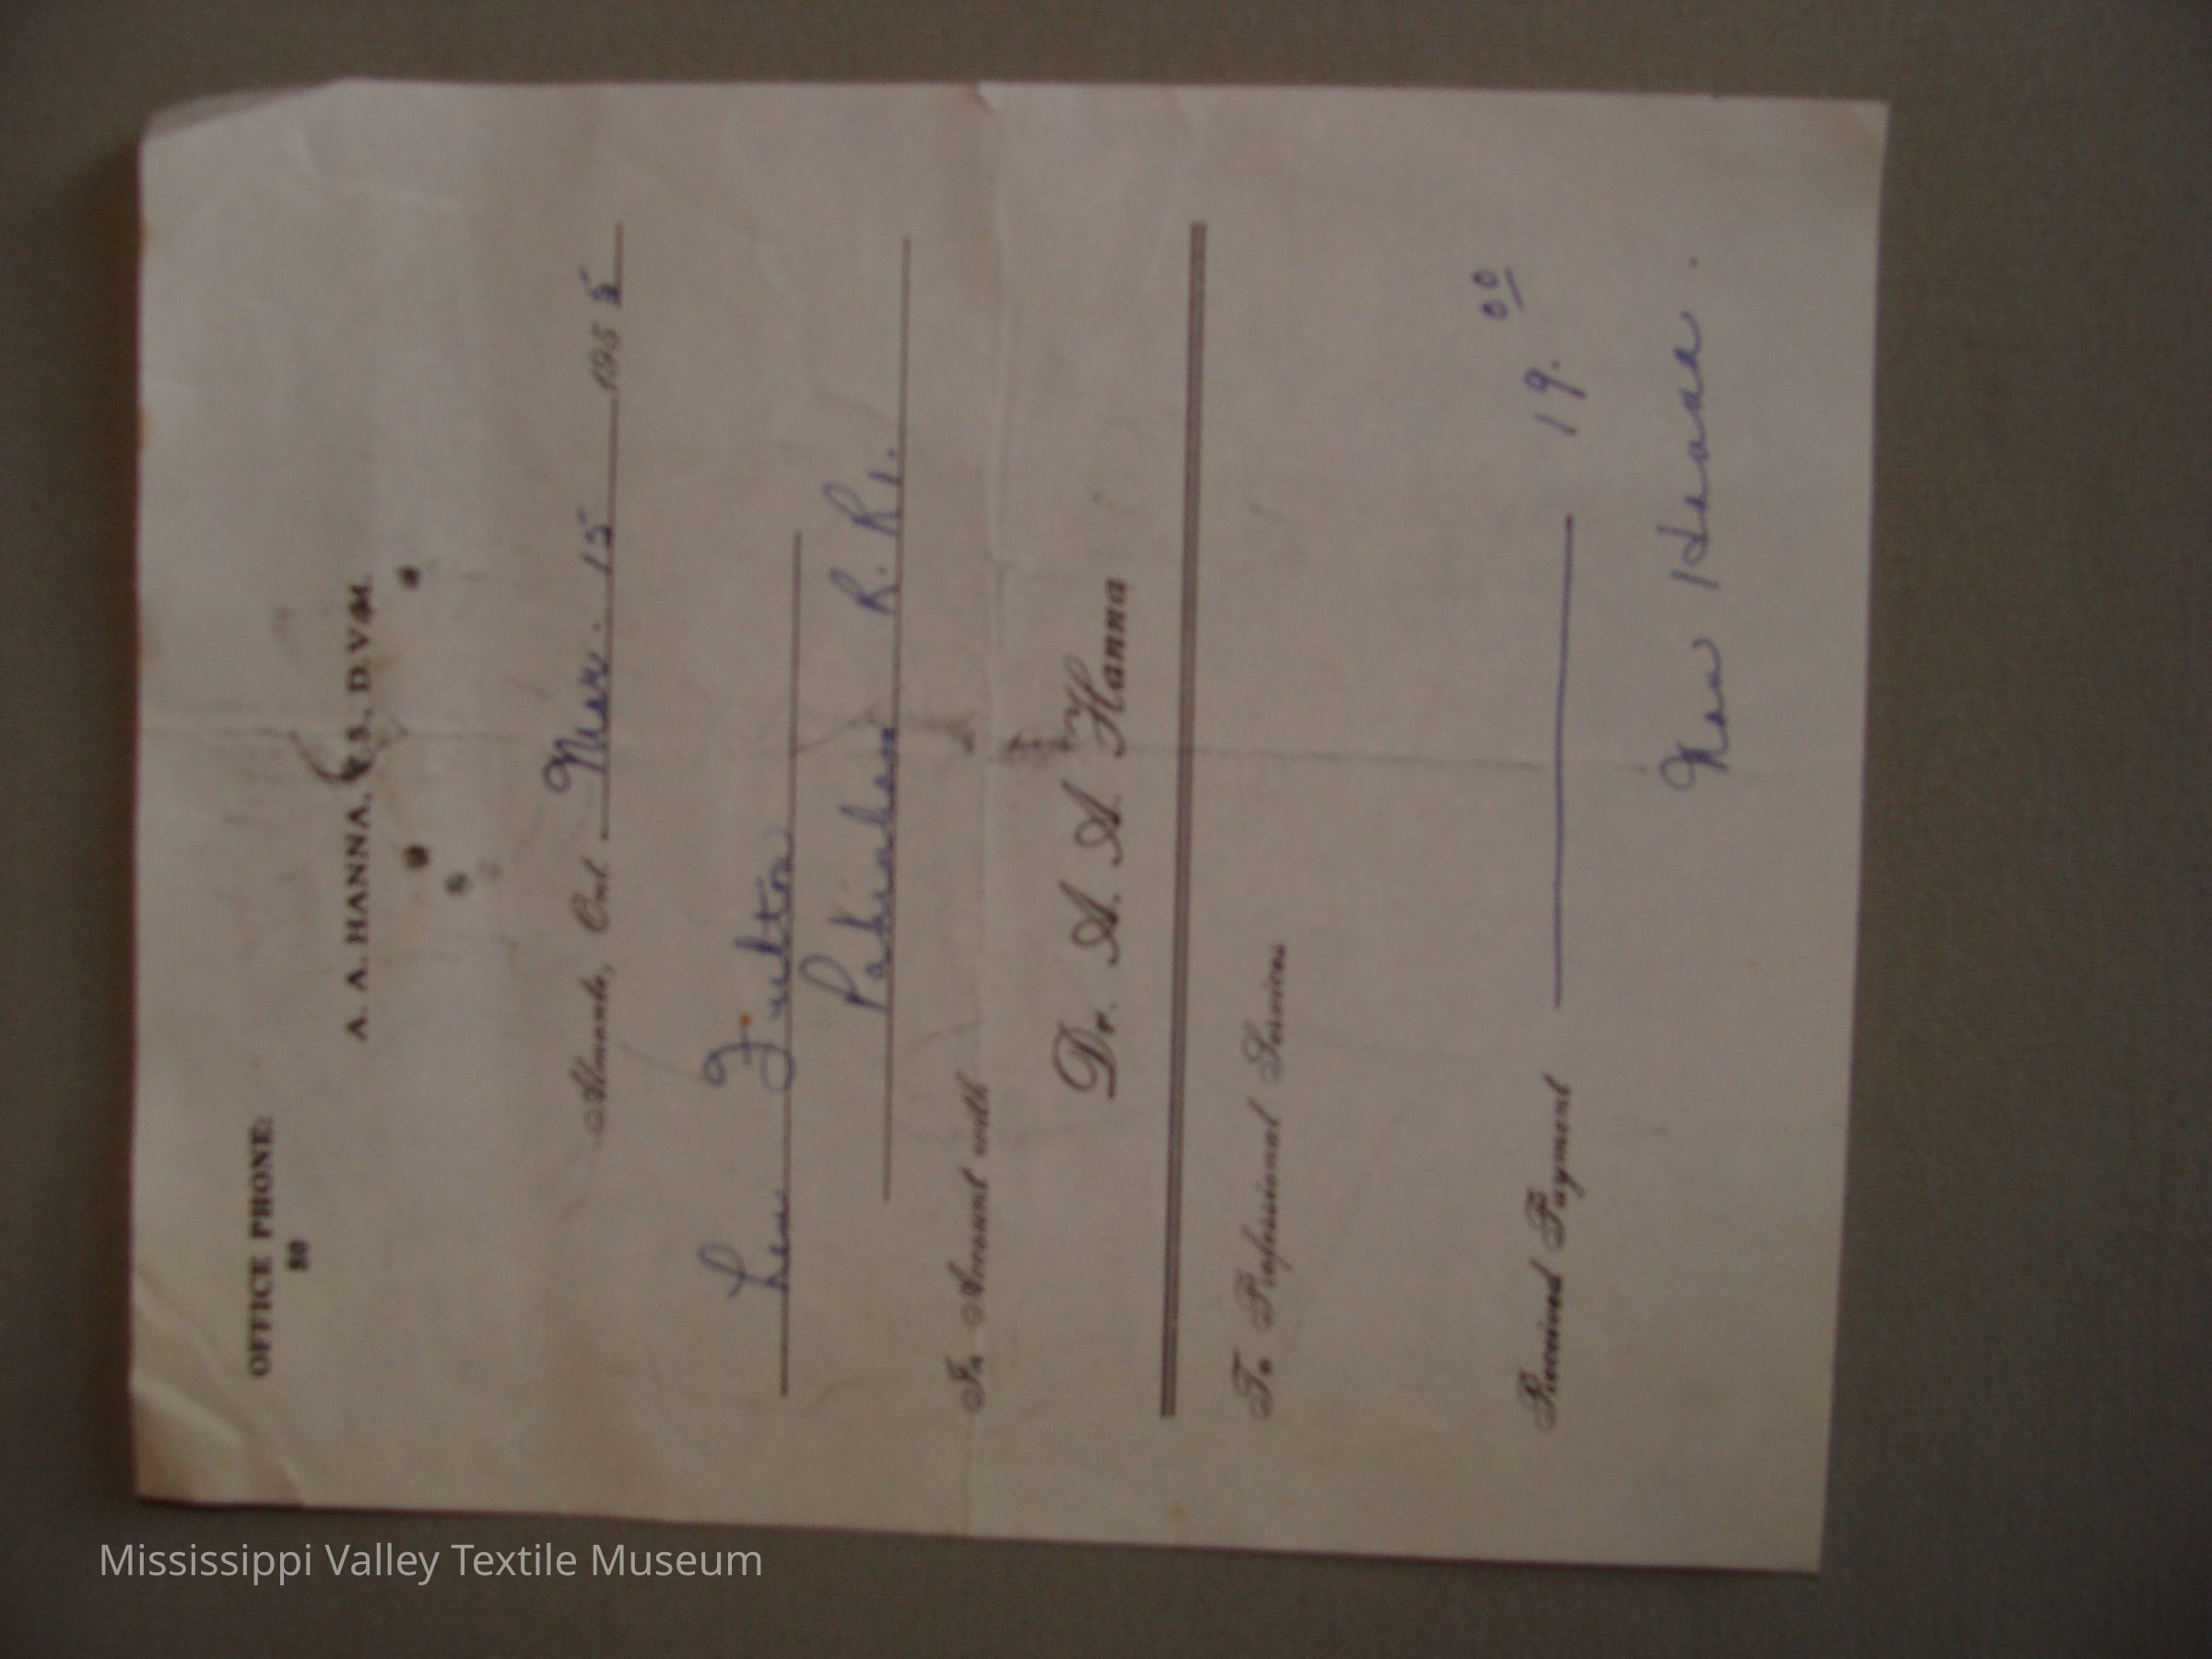 OFFICE PHONE:
50
A. A. HANNA, V.S., D.V.M.
Almonte, Ont. Mar. 15 1955
Len Fulton
Pakenham R. R1.
In Account with
Dr. A. A. Hanna
To Professional Services
Received Payment 19.00
Hanna.
Mississippi Valley Textile Museum